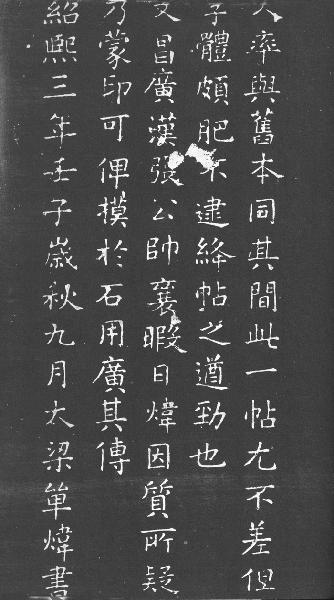 大率與舊本同其間此一帖尤不差但
字體頗肥不逮絳帖之遒勁也
文昌廣漢張公帥襄暇日煒因質所疑
乃蒙印可俾摸於石用廣其傳
紹熙三年壬子歲秋九月太梁單煒書